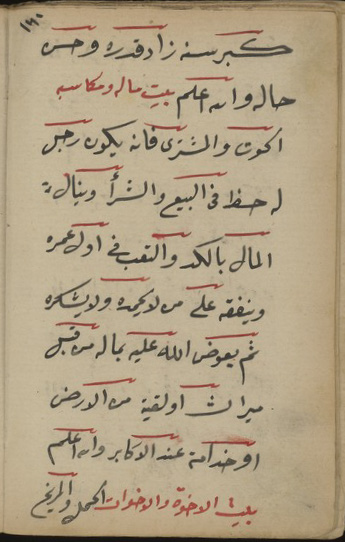 ١٩٠
كبر سنه زاد قدره وحسن
حاله والله اعلم بيت ماله ومكاسبه
الحوت والمشترى فانه يكون رجل
له حظ فى البيع والشرأ وينال
المال بالكد والتعب فى اول عمره
وينفقه على من لا يحمده ولا يشكره
ثم يعوض الله عليه بماله من قبل
ميراث او لقية من الارض
او خدامة عند الاكابر والله اعلم
بيت الاخوة والاخوات الحمل والمريخ